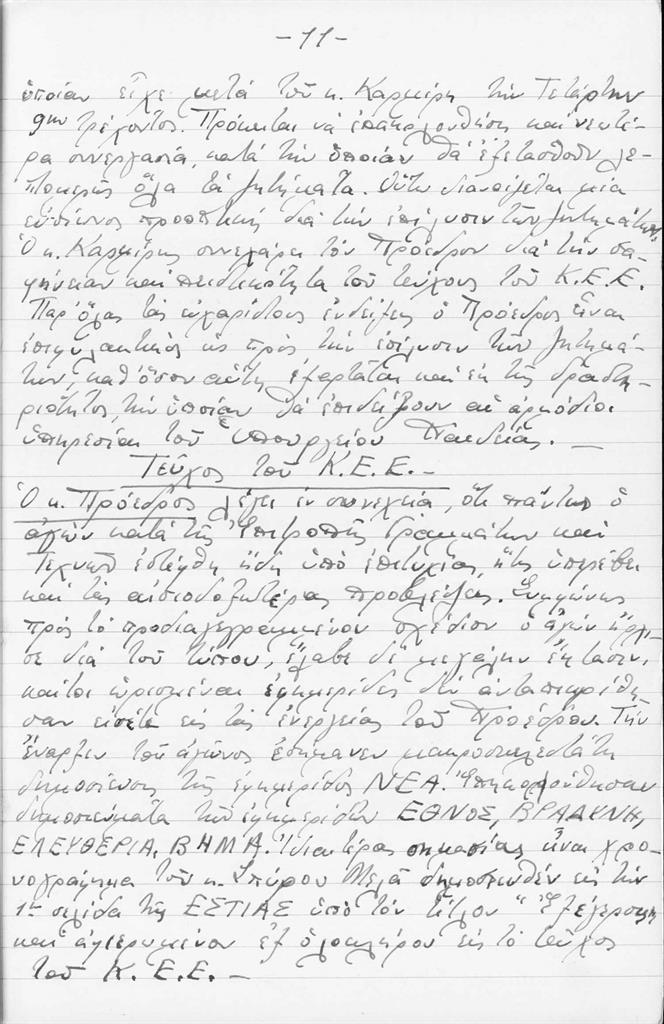 - 11 -
ὁποίαν εἶχε μετά τοῦ κ. Καρμίρη τήν Τετάρτην
9ην τρέχοντος. Πρόκειται νά ἐπακολουθήσῃ καί νεωτέ-
ρα συνεργασία, κατά τήν ὁποίαν θά ἐξετασθοῦν λε-
πτομερῶς ὅλα τά ζητήματα. Οὕτω διανοίγεται μία
εὐθύνος προοπτική διά τήν ἐπίλυσιν τῶν ζητημάτων.
Ὁ κ. Καρμίρης συνεχάρη τόν Πρόεδρον διά τήν σα-
φήνειαν καί πειστικότητα τοῦ τεύχους τοῦ Κ.Ε.Ε.
Παρ' ὅλας τάς εὐχαρίστους ἐνδείξεις ὁ Πρόεδρος εἶναι
ἐπιφυλακτικός ὡς πρός τήν ἐπίλυσιν τῶν ζητημά-
των, καθ' ὅσον αὕτη ἐξαρτᾶται καί ἐκ τῆς δραστη-
ριότητος, τήν ὁποίαν θά ἐπιδείξουν αἱ ἁρμόδιοι
ὑπηρεσίαι τοῦ Ὑπουργείου Παιδείας. —
Τεῦχος τοῦ Κ.Ε.Ε. -
Ὁ κ. Πρόεδρος λέγει ἐν συνεχείᾳ, ὅτι πάντως ὁ
ἀγών κατά τῆς Ἐπιτροπῆς Γραμμάτων καί
Τεχνῶν ἐστέφθη ἤδη ὑπό ἐπιτυχίας, ἥτις ὑπερέβη
καί τάς αἰσιοδοξωτέρας προβλέψεις. Συμφώνως
πρός τό προδιαγεγραμμένον σχέδιον ὁ ἀγών ἤρχι-
σε διά τοῦ τύπου, ἔλαβε δέ μεγάλην ἔκτασιν,
καίτοι ὡρισμέναι ἐφημερίδες δέν ἀνταπεκρίθη-
σαν εἰσέτι εἰς τάς ἐνεργείας τοῦ Προέδρου. Τήν
ἔναρξιν τοῦ ἀγῶνος ἐσήμανεν μακροσκελεστάτη
δημοσίευσις τῆς ἐφημερίδος ΝΕΑ. Ἐπηκολούθησαν
δημοσιεύματα τῶν ἐφημερίδων ΕΘΝΟΣ, ΒΡΑΔΥΝΗ,
ΕΛΕΥΘΕΡΙΑ, ΒΗΜΑ. Ἰδιαιτέρας σημασίας εἶναι χρο-
νογράφημα τοῦ κ. Σπύρου Μελᾶ δημοσιευθέν εἰς τήν
1ην σελίδα τῆς ΕΣΤΙΑΣ ὑπό τόν τίτλον "Ἐξέγερσις"
καί ἀφιερωμένον ἐξ ὁλοκλήρου εἰς τό τεῦχος
τοῦ Κ.Ε.Ε. -